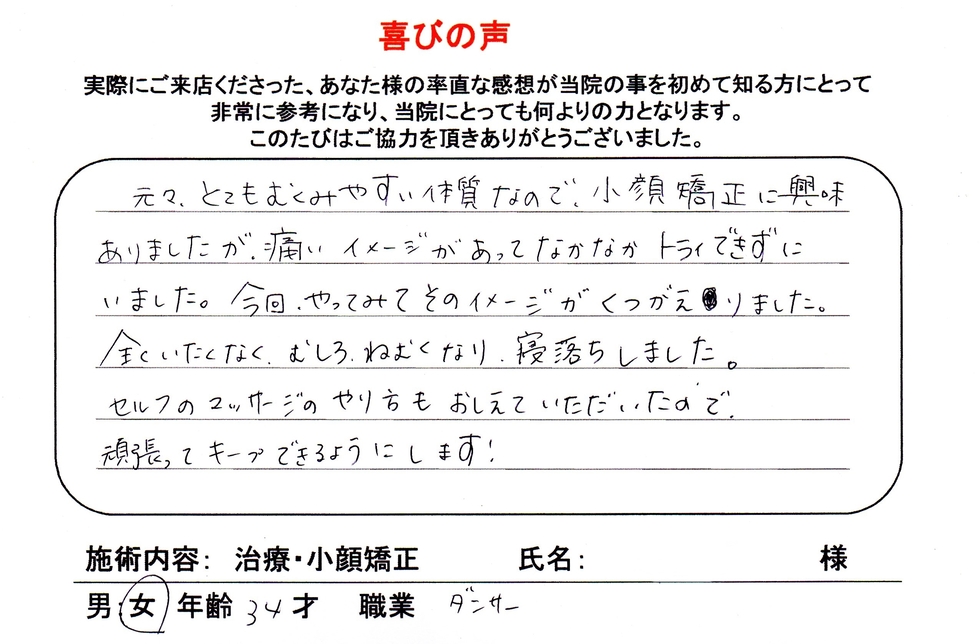 喜びの声
実際にご来店くださった、あなた様の率直な感想が当院の事を初めて知る方にとって
非常に参考になり、当院にとっても何よりの力となります。
このたびはご協力を頂きありがとうございました。
元々、とてもむくみやすい体質なので、小顔矯正に興味
ありましたが、痛いイメージがあってなかなかトライできずに
いました。今回、やってみてそのイメージがくつがえりました。
全くいたくなく、むしろ、ねむくなり、寝落ちしました。
セルフのマッサージのやり方もおしえていただいたので、
頑張ってキープできるようにします!
施術内容: 治療・小顔矯正 氏名: 様
男:女 年齢 34才 職業 ダンサー